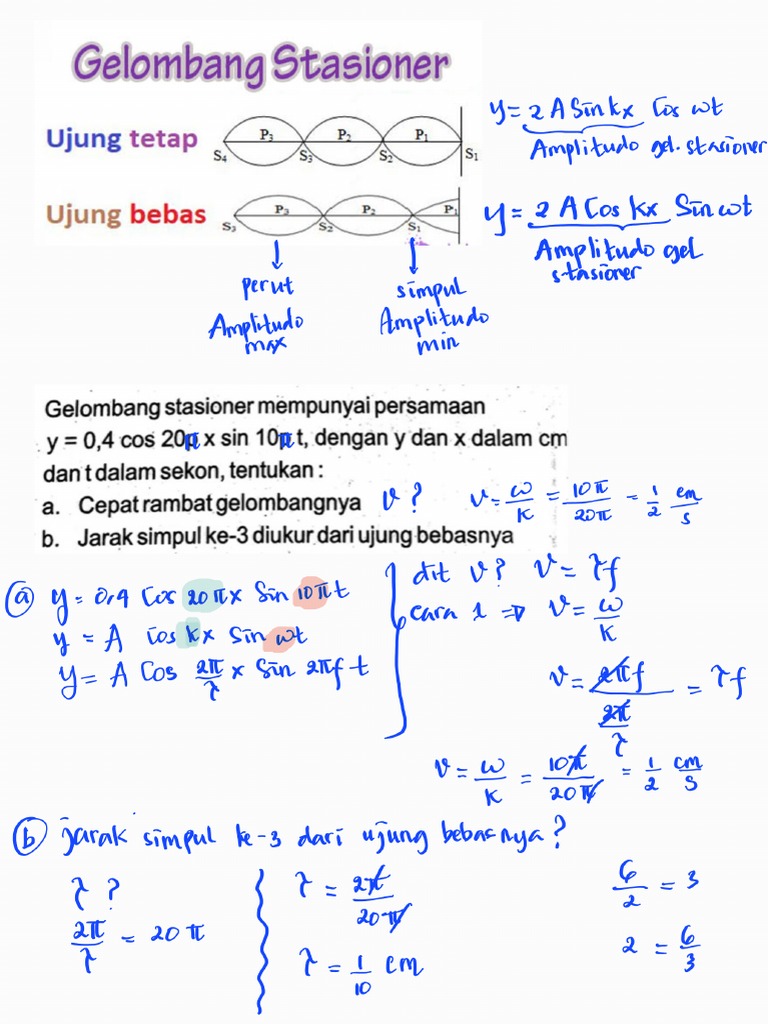 Gelombang Stasioner
Ujung tetap
P₃ P₂ P₁
S₄ S₃ S₂ S₁
y = 2 A Sin kx Cos ωt
Amplitudo gel. stasioner
Ujung bebas
P₃ P₂ P₁
S₃ S₂ S₁
y = 2 A Cos kx Sin ωt
Amplitudo gel
stasioner
perut
Amplitudo
max
simpul
Amplitudo
min
Gelombang stasioner mempunyai persamaan
y = 0,4 cos 20π x sin 10π t, dengan y dan x dalam cm
dan t dalam sekon, tentukan :
a. Cepat rambat gelombangnya v? v = ω/k = 10π/20π = 1/2 cm/s
b. Jarak simpul ke-3 diukur dari ujung bebasnya
ⓐ y = 0,4 Cos 20πx Sin 10πt
y = A Cos kx Sin ωt
y = A Cos 2π/λ x Sin 2πf t
dit v? v = λf
cara 1 ⇒ v = ω/k
v = 2πf / 2π/λ = λf
v = ω/k = 10π/20π = 1/2 cm/s
ⓑ jarak simpul ke-3 dari ujung bebasnya?
λ?
2π/λ = 20π
λ = 2π/20π
λ = 1/10 cm
6/2 = 3
2 = 6/3